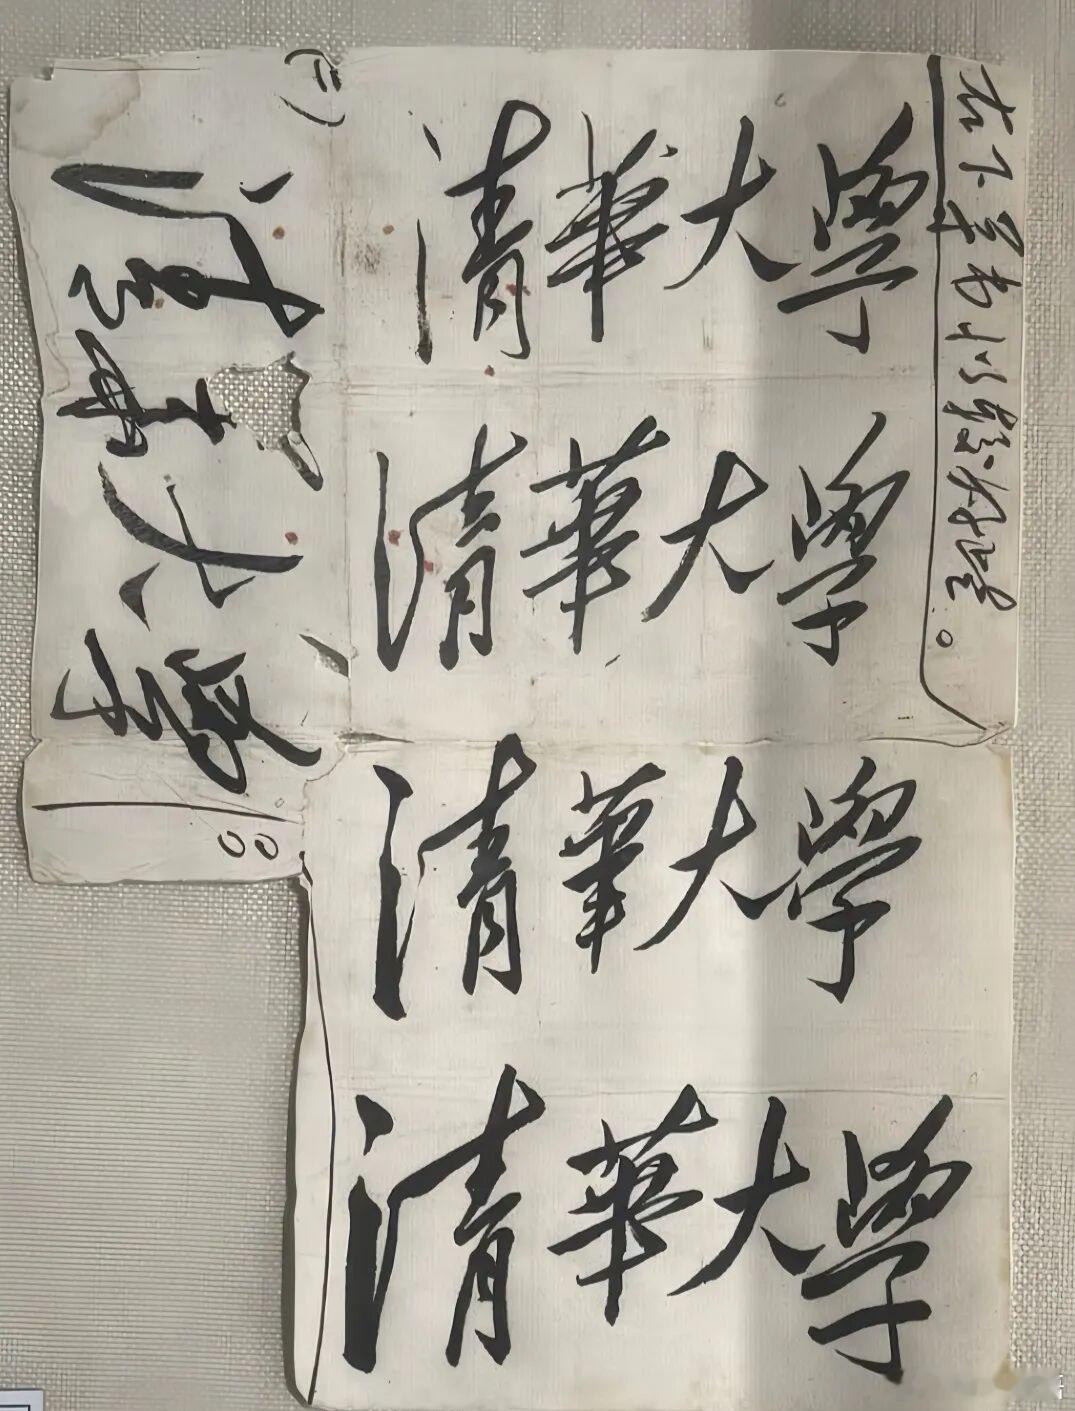 清華大學
清華大學
清華大學
清華大學
清華大學